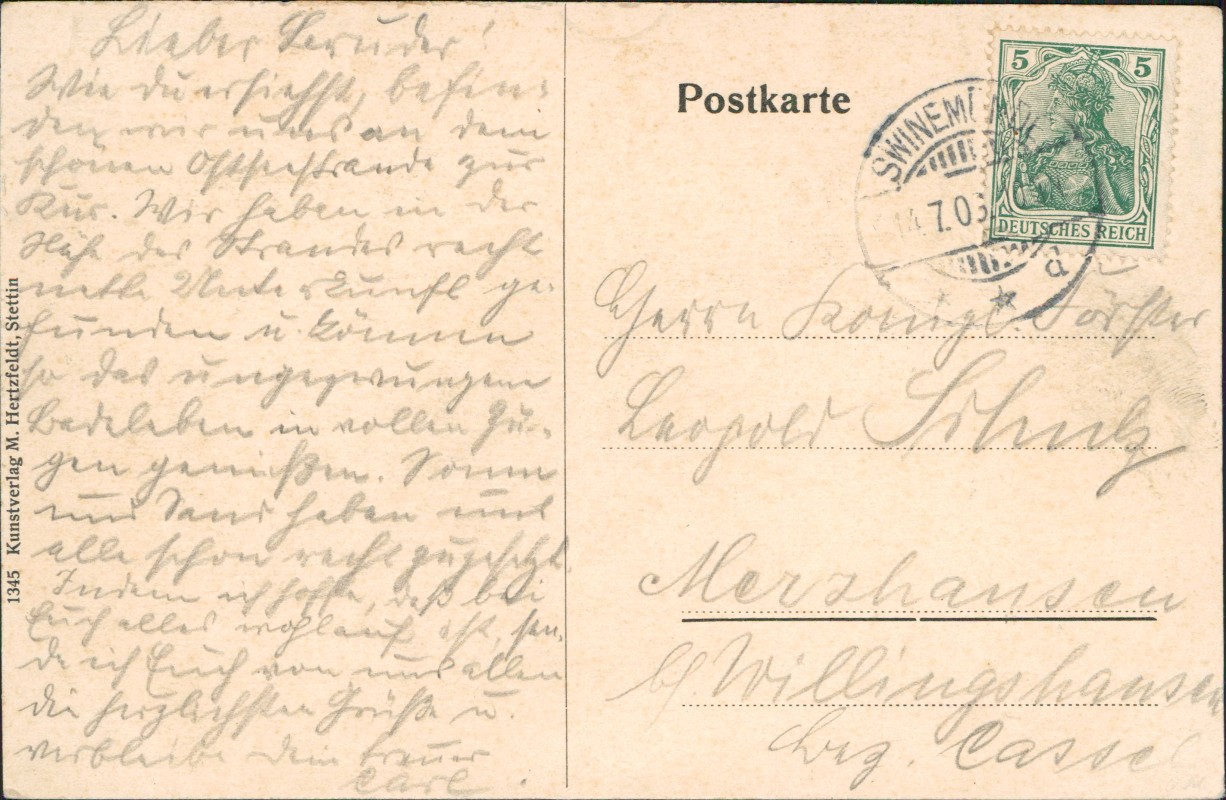 Lieber Bruder!
Wie du ersiehst, befin-
den wir uns an dem
schönen Ostseestrande zur
Kur. Wir haben in der
Nähe des Strandes recht
nette Unterkunft ge-
funden u. können
so das ungezwungene
Badeleben in vollen Zü-
gen genießen. Sonne
und Sand haben uns
alle schon recht zugesetzt.
Indem ich hoffe, daß bei
Euch alles wohlauf ist, sen-
de ich Euch von uns allen
die herzlichsten Grüße u.
verbleibe dein treuer
Carl.
1345 Kunstverlag M. Hertzfeldt, Stettin
Postkarte
5 5
DEUTSCHES REICH
SWINEMÜNDE
14.7.03
d
Herrn Königl. Förster
Leopold Schulz
Merzhausen
b/ Willingshausen
Bez. Cassel